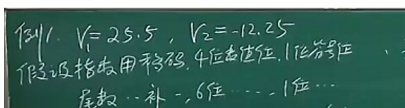 例1. V₁=25.5, V₂=-12.25
假设指数用移码.4位数值位.1位符号位
尾数…补-,6位……,1位…